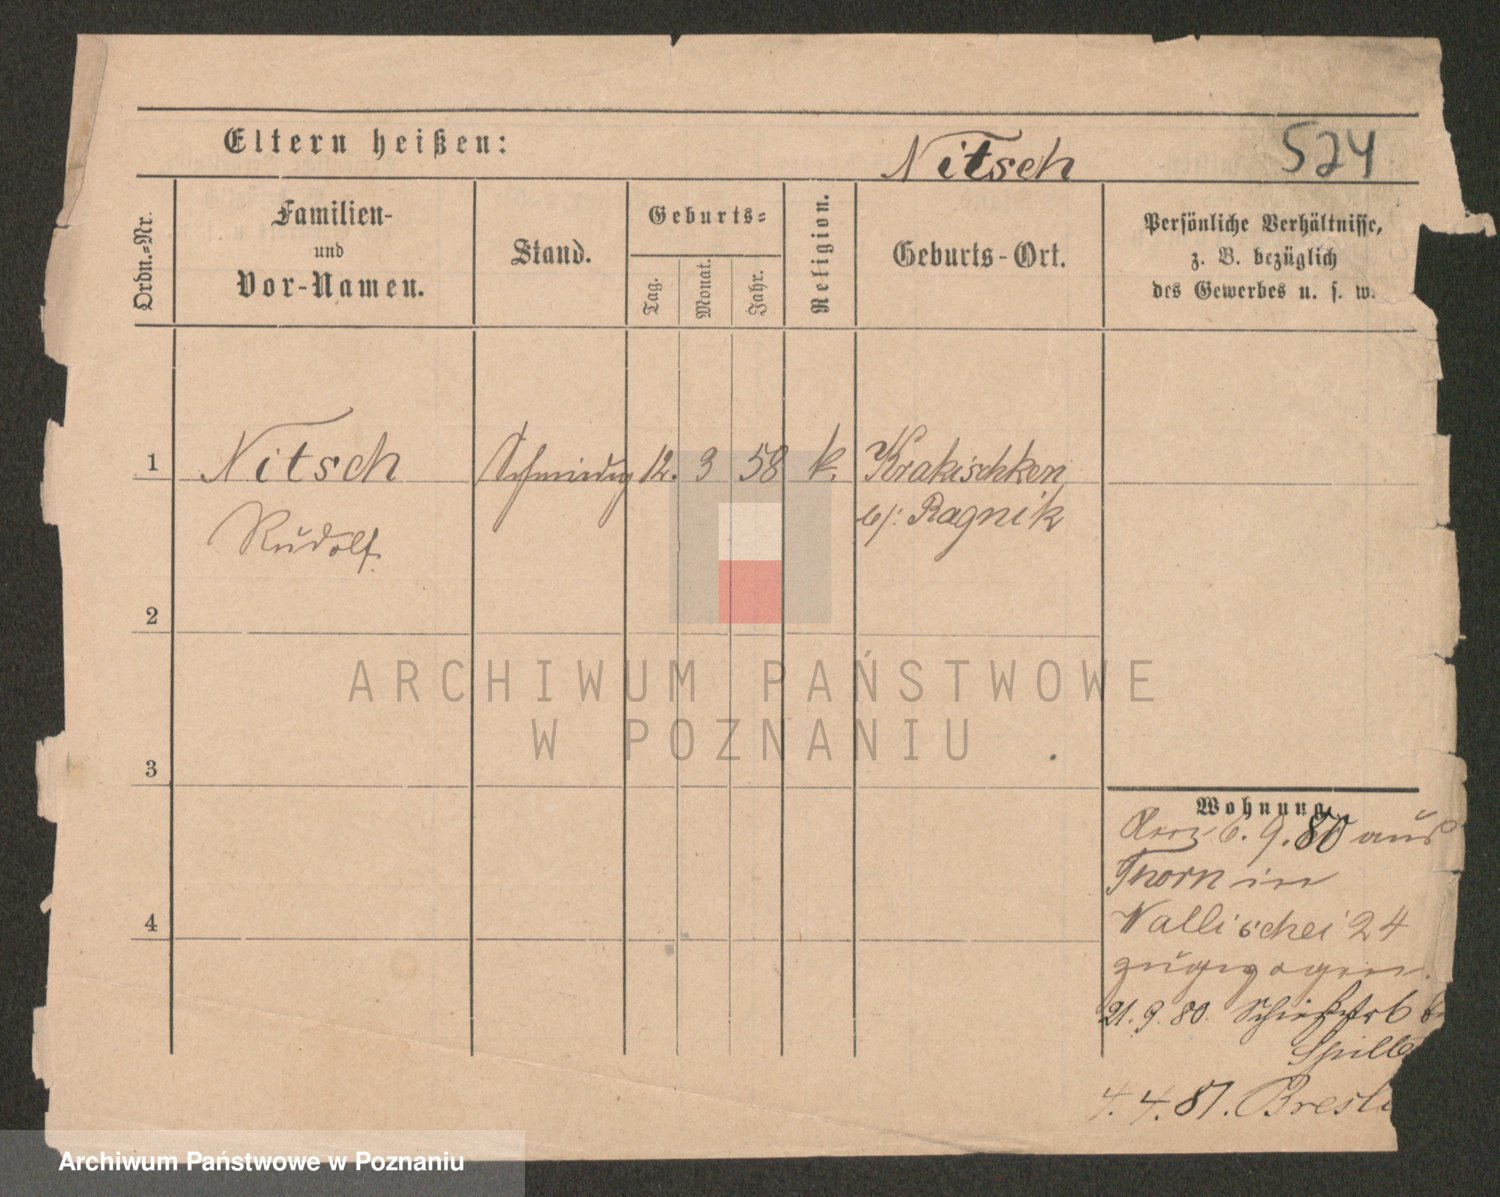 Eltern heißen:
Nitsch
524
Ordn.-Nr.
Familien-
und
Vor-Namen.
Stand.
Geburts-
Tag.
Monat.
Jahr.
Religion.
Geburts-Ort.
Persönliche Verhältnisse,
z. B. bezüglich
des Gewerbes u. s. w.
1 Nitsch 12. 3 58 k. Krakischken
Rudolf b/: Ragnik
2
3
4
Wohnung.
6. 9. 80 aus
Thorn in
Wallischei 24
zugezogen.
21. 9. 80.
4. 4. 81.
ARCHIWUM PAŃSTWOWE
W POZNANIU
Archiwum Państwowe w Poznaniu